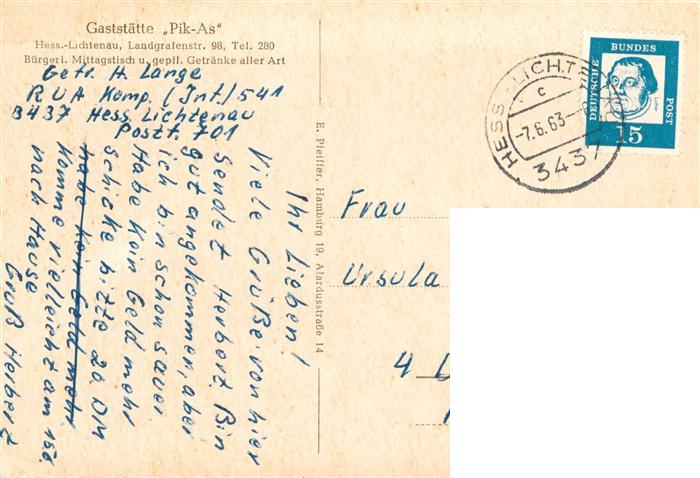 Gaststätte „Pik-As"
Hess.-Lichtenau, Landgrafenstr. 98, Tel. 280
Bürgerl. Mittagstisch u. gepfl. Getränke aller Art
Gefr. H. Lange
RUA Komp. (Inf.) 541
3437 Hess. Lichtenau
Postf. 701
Ihr Lieben!
Viele Grüße von hier
sendet Herbert. Bin
gut angekommen, aber
ich bin schon sauer
Habe kein Geld mehr
schicke bitte 20.DM
habe kein Geld mehr
komme vielleicht am
nach Hause
Gruß Herbert
E. Pfeiffer, Hamburg 19, Alardusstraße 14
HESS LICHT
c
-7.6.63-
3437
DEUTSCHE
BUNDES
POST
15
Frau
Ursula
4